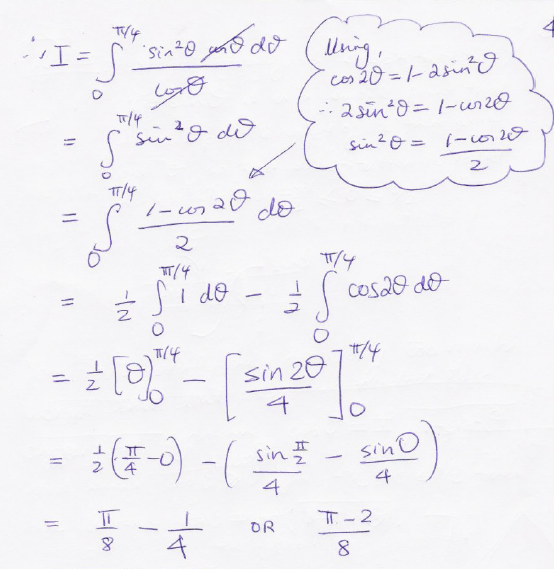 4
∴ I = ∫₀^{π/4} sin²θ cosθ dθ / cosθ
Using,
cos 2θ = 1 - 2sin²θ
∴ 2sin²θ = 1 - cos2θ
sin²θ = (1 - cos 2θ)/2
= ∫₀^{π/4} sin²θ dθ
= ∫₀^{π/4} (1 - cos 2θ)/2 dθ
= 1/2 ∫₀^{π/4} 1 dθ - 1/2 ∫₀^{π/4} cos2θ dθ
= 1/2 [θ]₀^{π/4} - [sin 2θ/4]₀^{π/4}
= 1/2 (π/4 - 0) - (sin π/2 /4 - sin 0/4)
= π/8 - 1/4 OR (π - 2)/8